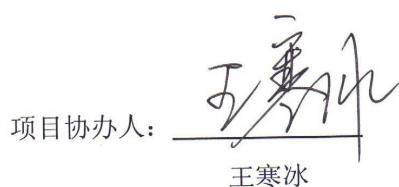 项目协办人：王寒冰
王寒冰